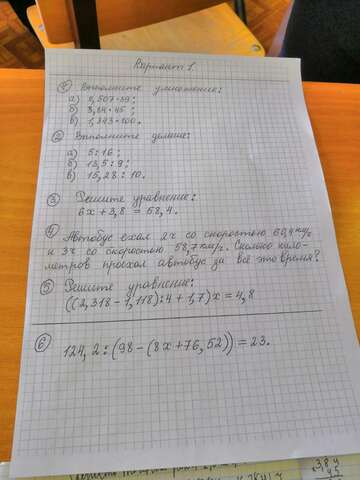 Вариант 1.
① Выполните умножение:
а) 2,507·39;
б) 3,84·45;
в) 1,343·100.
② Выполните деление:
а) 5:16;
б) 13,5:9;
в) 15,28:10.
③ Решите уравнение:
6x+3,8 = 58,4.
④ Автобус ехал 2ч со скоростью 60,4км/ч
и 3ч со скоростью 58,7км/ч. Сколько кило-
метров проехал автобус за всё это время?
⑤ Решите уравнение:
((2,318-1,118):4+1,7)x=4,8
⑥ 124,2:(98-(8x+76,52))=23.